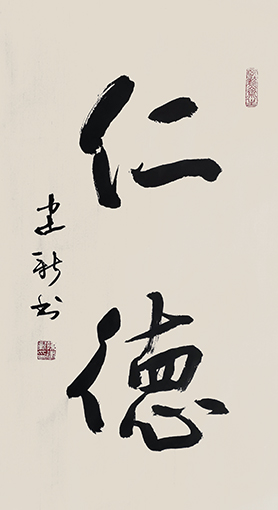 仁德
建新书